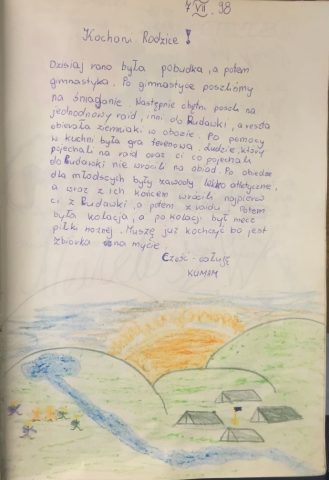 7 VII. 98
Kochani Rodzice!
Dzisiaj rano była pobudka, a potem
gimnastyka. Po gimnastyce poszliśmy
na śniadanie. Następnie chętni poszli na
jednodniowy raid, inni do Rudawki, a reszta
obierała ziemniaki w obozie. Po pomocy
w kuchni była gra terenowa. Ludzie, którzy
pojechali na raid oraz ci co pojechali
do Rudawki nie wrócili na obiad. Po obiedzie
dla młodszych były zawody lekko atletyczne,
a wraz z ich końcem wrócili najpierw
ci z Rudawki, a potem z raidu. Potem
była kolacja, a po kolacji był mecz
piłki nożnej. Muszę już kończyć bo jest
zbiórka na mycie.
Cześć - całuję